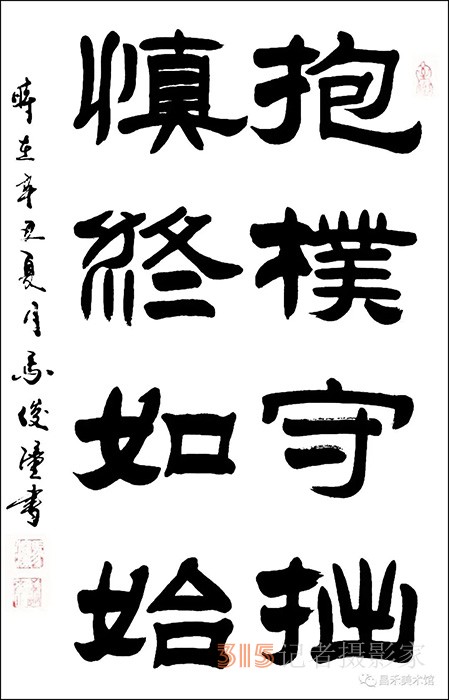 抱樸守拙
慎修如始
時在辛丑夏月馬俊書
315记者摄影家
昌禾美术馆